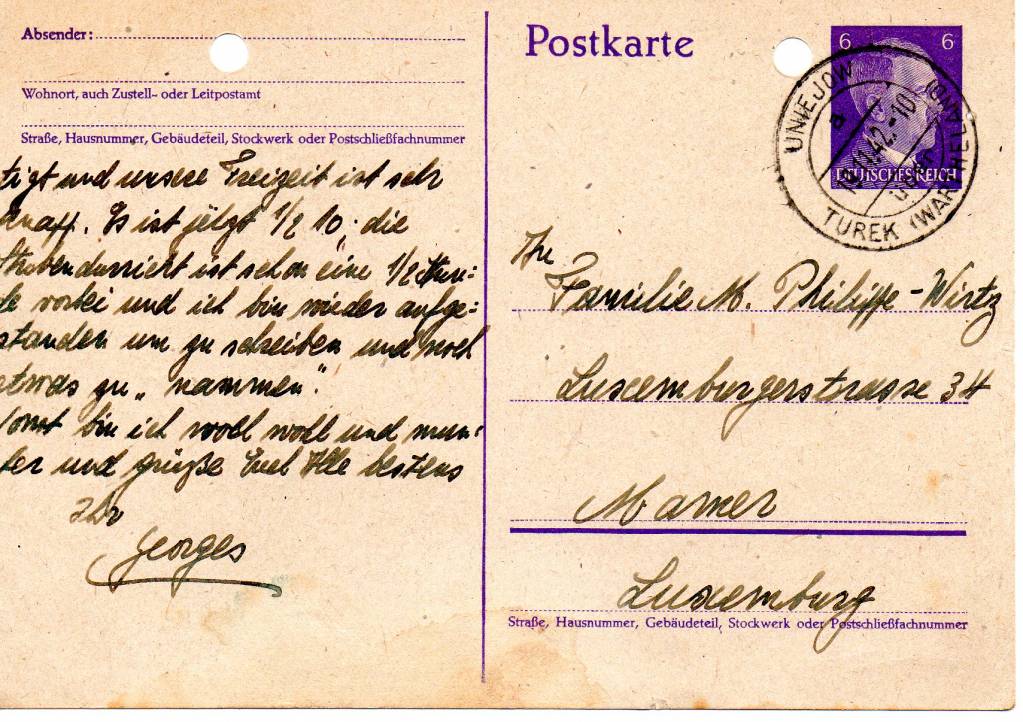 Absender:
Wohnort, auch Zustell- oder Leitpostamt
Straße, Hausnummer, Gebäudeteil, Stockwerk oder Postschließfachnummer
tigt und unsere Freizeit ist sehr
knapp. Es ist jetzt 1/2 10, die
ist schon eine 1/2 Stun-
de vorbei und ich bin wieder aufge-
standen um zu schreiben und noch
etwas zu „nammen".
Sonst bin ich noch wohl und mun-
ter und grüße Euch Alle bestens
Ihr
Georges
Postkarte
6 6
DEUTSCHES REICH
UNIEJOW
TUREK (WARTHELAND)
a
42.-10
An
Familie M. Philippe-Wirtz
Luxemburgerstrasse 34
Mamer
Luxemburg
Straße, Hausnummer, Gebäudeteil, Stockwerk oder Postschließfachnummer